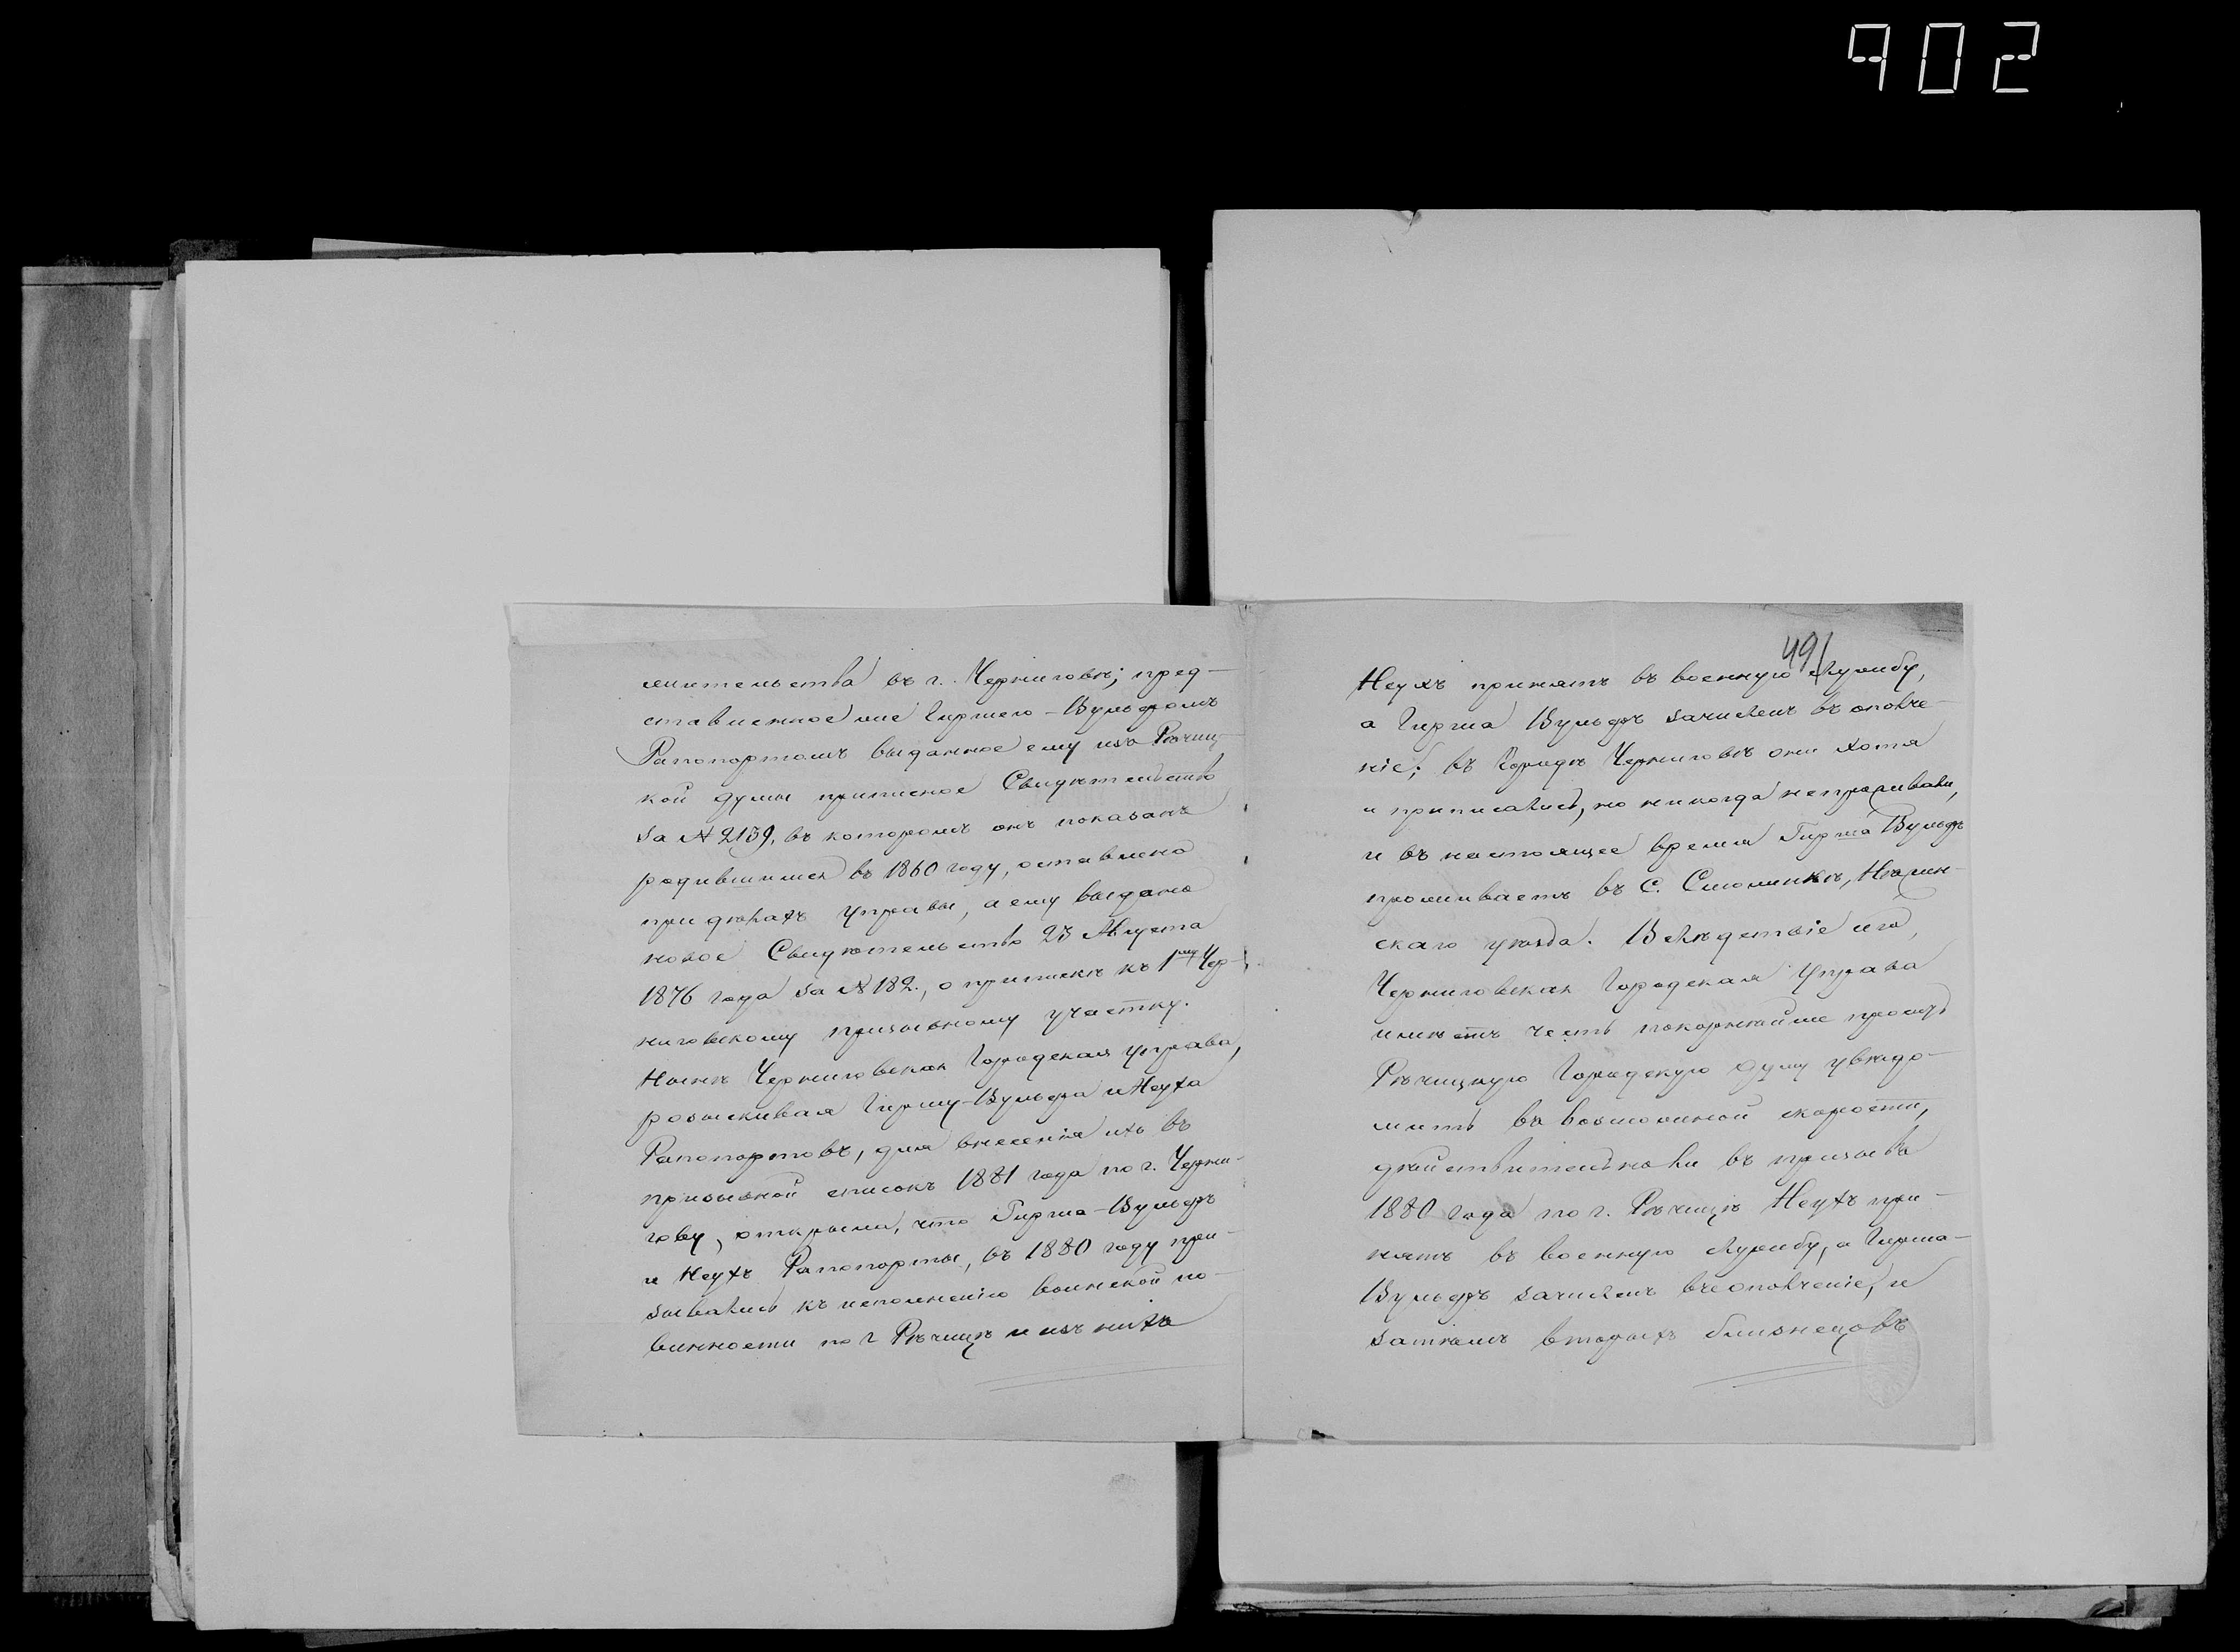 902
жительства въ г. Черниговѣ; пред-
ставленное же Гиршею-Вульфомъ
Рапопортомъ выданное ему изъ Рѣчиц-
кой думы приписное Свидѣтельство
за № 2139, въ которомъ онъ показанъ
родившимся въ 1860 году, оставлено
при дѣлахъ Управы, а ему выдано
новое Свидѣтельство 23 Августа
1876 года за № 182., о припискѣ къ 1му Чер-
ниговскому призывному участку.
Нынѣ Черниговская Городская управа,
розыскивая Гиршу-Вульфа и Неуха
Рапопортовъ, для внесенія ихъ въ
призывной списокъ 1881 года по г. Черни-
гову, открыла, что Гирша-Вульфъ
и Неухъ Рапопорты, въ 1880 году при-
зывались къ исполненію воинской по-
винности по г Рѣчицѣ и изъ нихъ
491
Неухъ принятъ въ военную службу,
а Гирша Вульфъ зачисленъ въ ополче-
ніе; въ Городѣ Черниговѣ они хотя
и приписались, но никогда непроживали,
и въ настоящее время Гирша Вульфъ
проживаетъ въ С. Смолянкѣ, Нѣжин-
скаго уѣзда. Вслѣдствіе чего,
Черниговская Городская Управа
имѣетъ честь покорнѣйше просить
Рѣчицкую Городскую Думу увѣдо-
мить въ возможной скорости,
дѣйствительно ли въ призывъ
1880 года по г. Рѣчицѣ Неухъ при-
нятъ въ военную службу, а Гирша-
Вульфъ зачисленъ въ ополченіе, и
затѣмъ вторыхъ близнецовъ